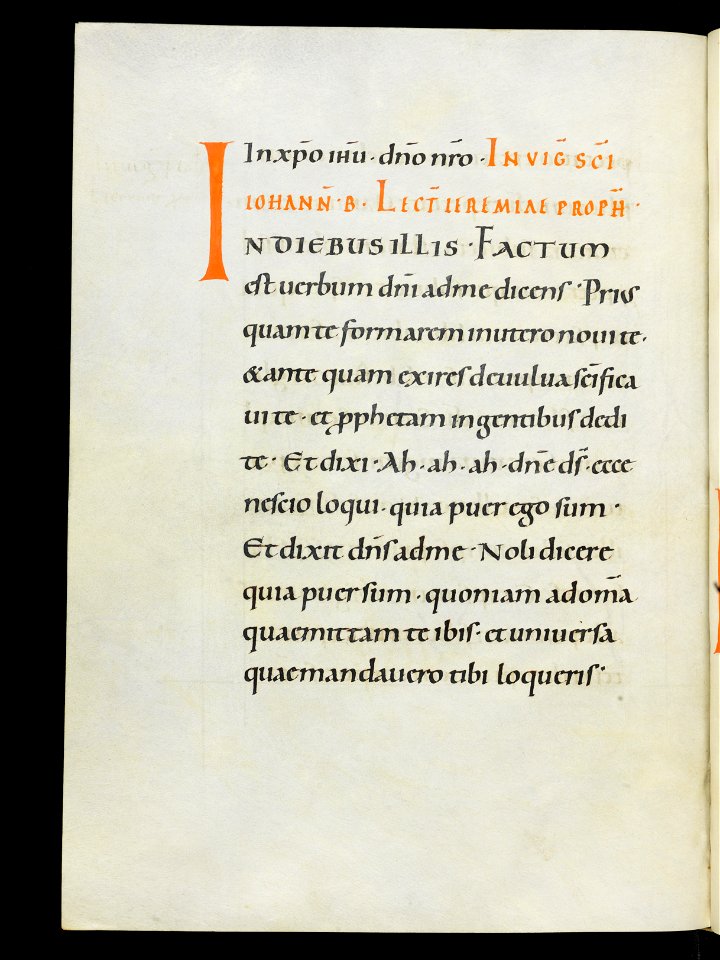 In xp̄o ihū · dn̄o nr̄o · IN VIḠ SC̄I
IOHANN̄ · B · LECT̄ IEREMIAE PROPH̄ ·
IN DIEBUS ILLIS · FACTUM
est uerbum dn̄i ad me dicens · Prius
quam te formarem in utero noui te ·
& ante quam exires de uulua sc̄ifica
ui te · et ꝓphetam in gentibus dedi
te · Et dixi · Ah · ah · ah · dn̄e ds̄ · ecce
nescio loqui · quia puer ego sum ·
Et dixit dn̄s ad me · Noli dicere
quia puer sum · quoniam ad om̄a
quae mittam te ibis · et uniuersa
quae mandauero tibi loqueris ·